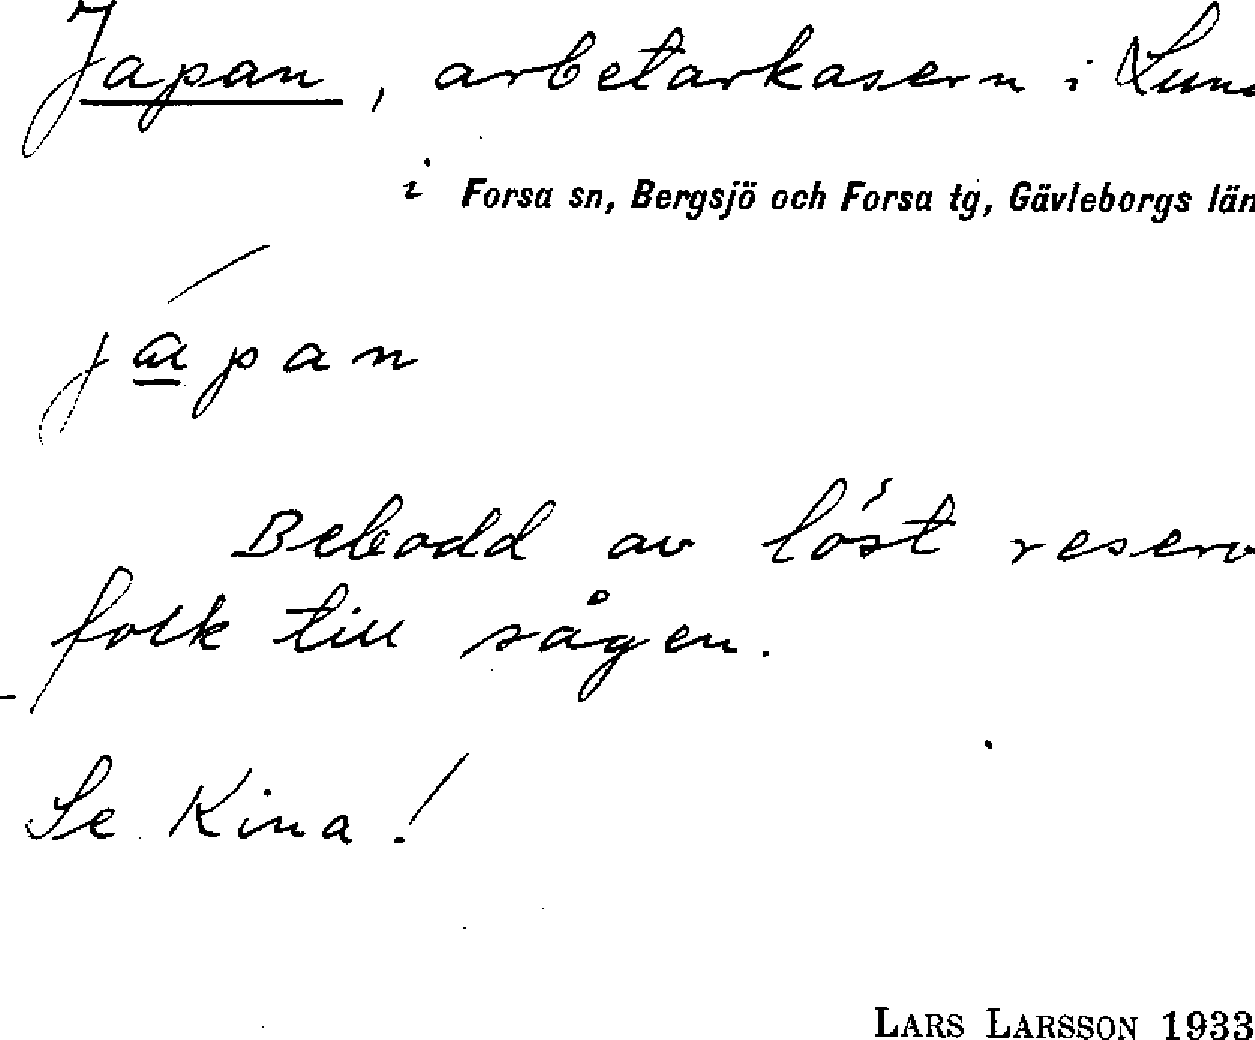 Japan, arbetarkasern i Lund
i Forsa sn, Bergsjö och Forsa tg, Gävleborgs län
japan
Bebodd av löst reserv
folk till sågen.
Se Kina!
LARS LARSSON 1933